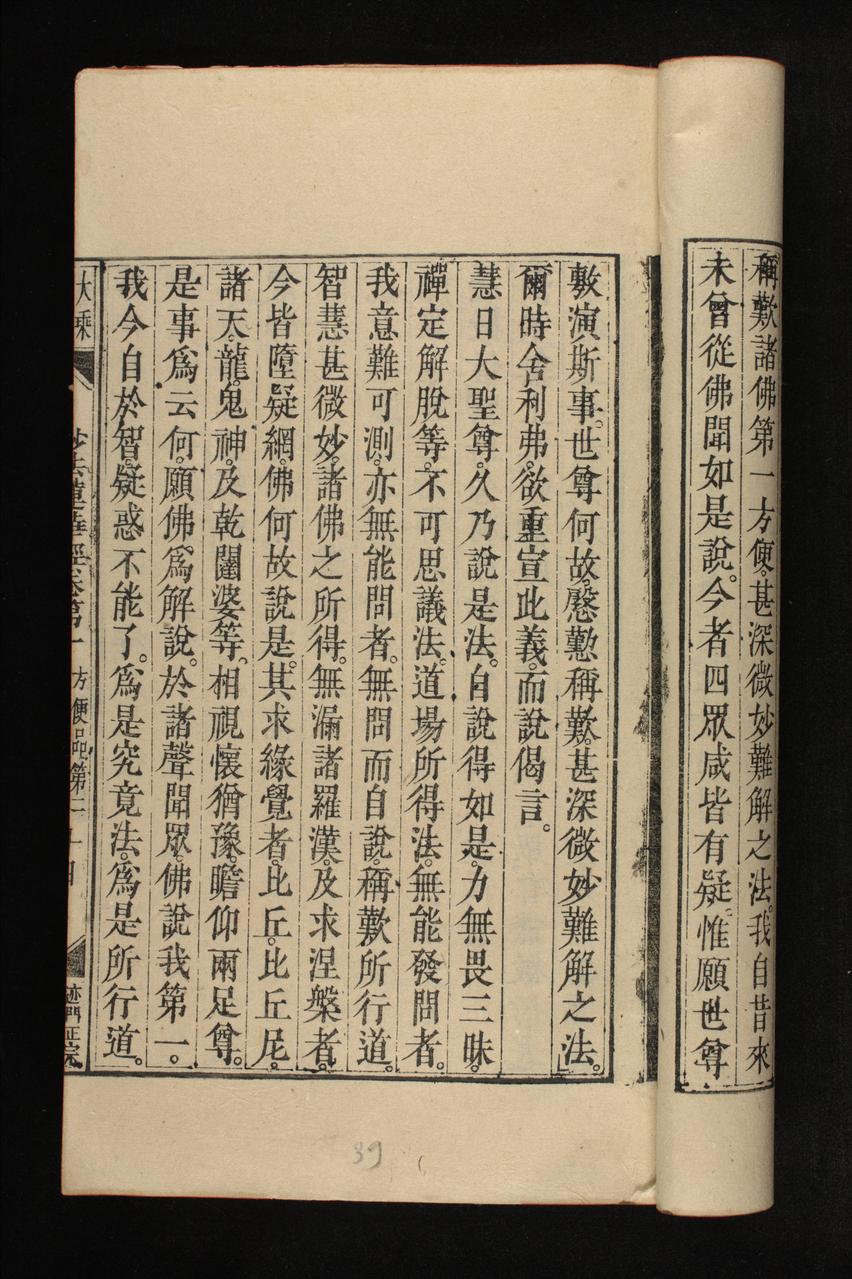 稱歎諸佛第一方便。甚深微妙難解之法。我自昔來
未曾從佛聞如是說。今者四眾咸皆有疑。惟願世尊
敷演斯事。世尊何故。慇懃稱歎。甚深微妙難解之法。
爾時舍利弗。欲重宣此義。而說偈言。
慧日大聖尊。久乃說是法。自說得如是。力無畏三昧。
禪定解脫等。不可思議法。道場所得法。無能發問者。
我意難可測。亦無能問者。無問而自說。稱歎所行道。
智慧甚微妙。諸佛之所得。無漏諸羅漢。及求涅槃者。
今皆墮疑網。佛何故說是。其求緣覺者。比丘。比丘尼。
諸天。龍。鬼神。及乾闥婆等。相視懷猶豫。瞻仰兩足尊。
是事為云何。願佛。為解說。於諸聲聞眾。佛說我第一。
我今自於智。疑惑不能了。為是究竟法。為是所行道。
大乘 妙法蓮華經卷第一 方便品第二 十四 迹門正宗
39